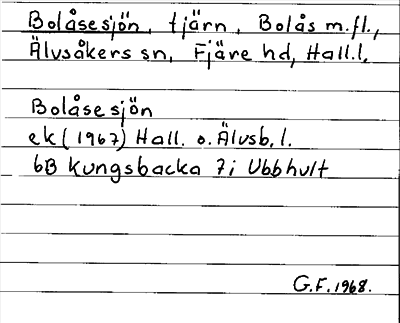 Bolåsesjön, tjärn, Bolås m.fl.,
Älvsåkers sn, Fjäre hd, Hall.l.
Bolåsesjön
ek (1967) Hall. o. Älvsb. l.
6B Kungsbacka 7i Ubbhult
G.F. 1968.